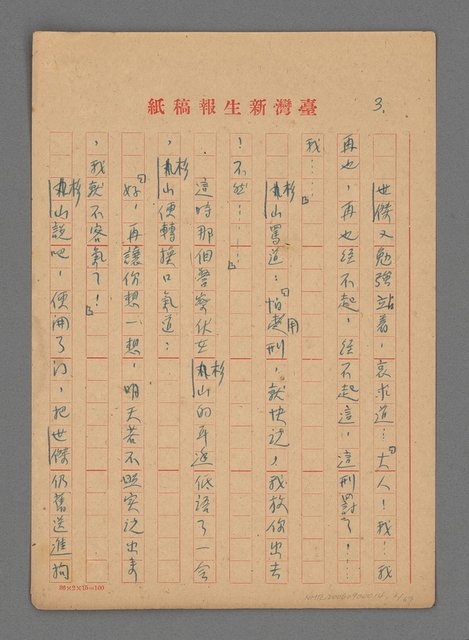 紙稿報生新灣臺
3.
世傑又勉強站着,哀求道:「大人!我…我
再也,再也經不起,經不起這,這刑罰了!…
我……」
杉山罵道:「怕用刑,就快說,我放你出去
!不然……」
這時那個警察伏在杉山的耳邊低語了一會
,杉山便轉換口氣道:
「好,再讓你想一想,明天若不照實說出來
,我就不客氣了!」
杉山說吧,便開了門,把世傑仍舊送進拘